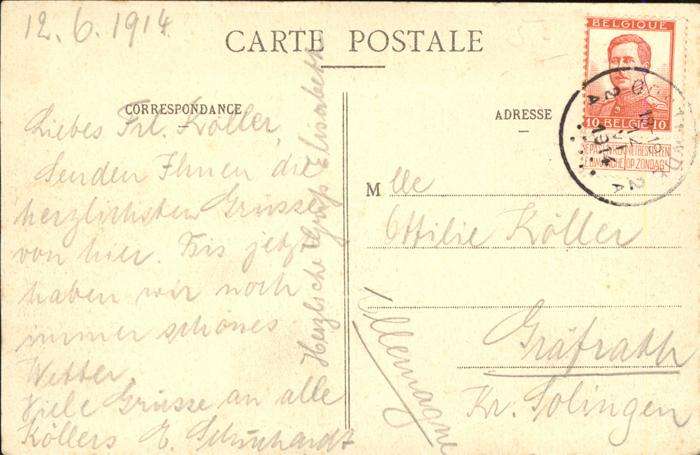 12. 6. 1914.
CARTE POSTALE
CORRESPONDANCE
ADRESSE
Liebes Frl. Köller,
Senden Ihnen die
herzlichsten Grüsse
von hier. Bis jetzt
haben wir noch
immer schönes
Wetter
Viele Grüsse an alle
Köllers E. Schuchardt
Herzliche Grüße Elisabeth
Mlle
Ottilie Köller
Gräfrath
Kr. Solingen
Allemagne
BELGIQUE
10 BELGIË 10
1914